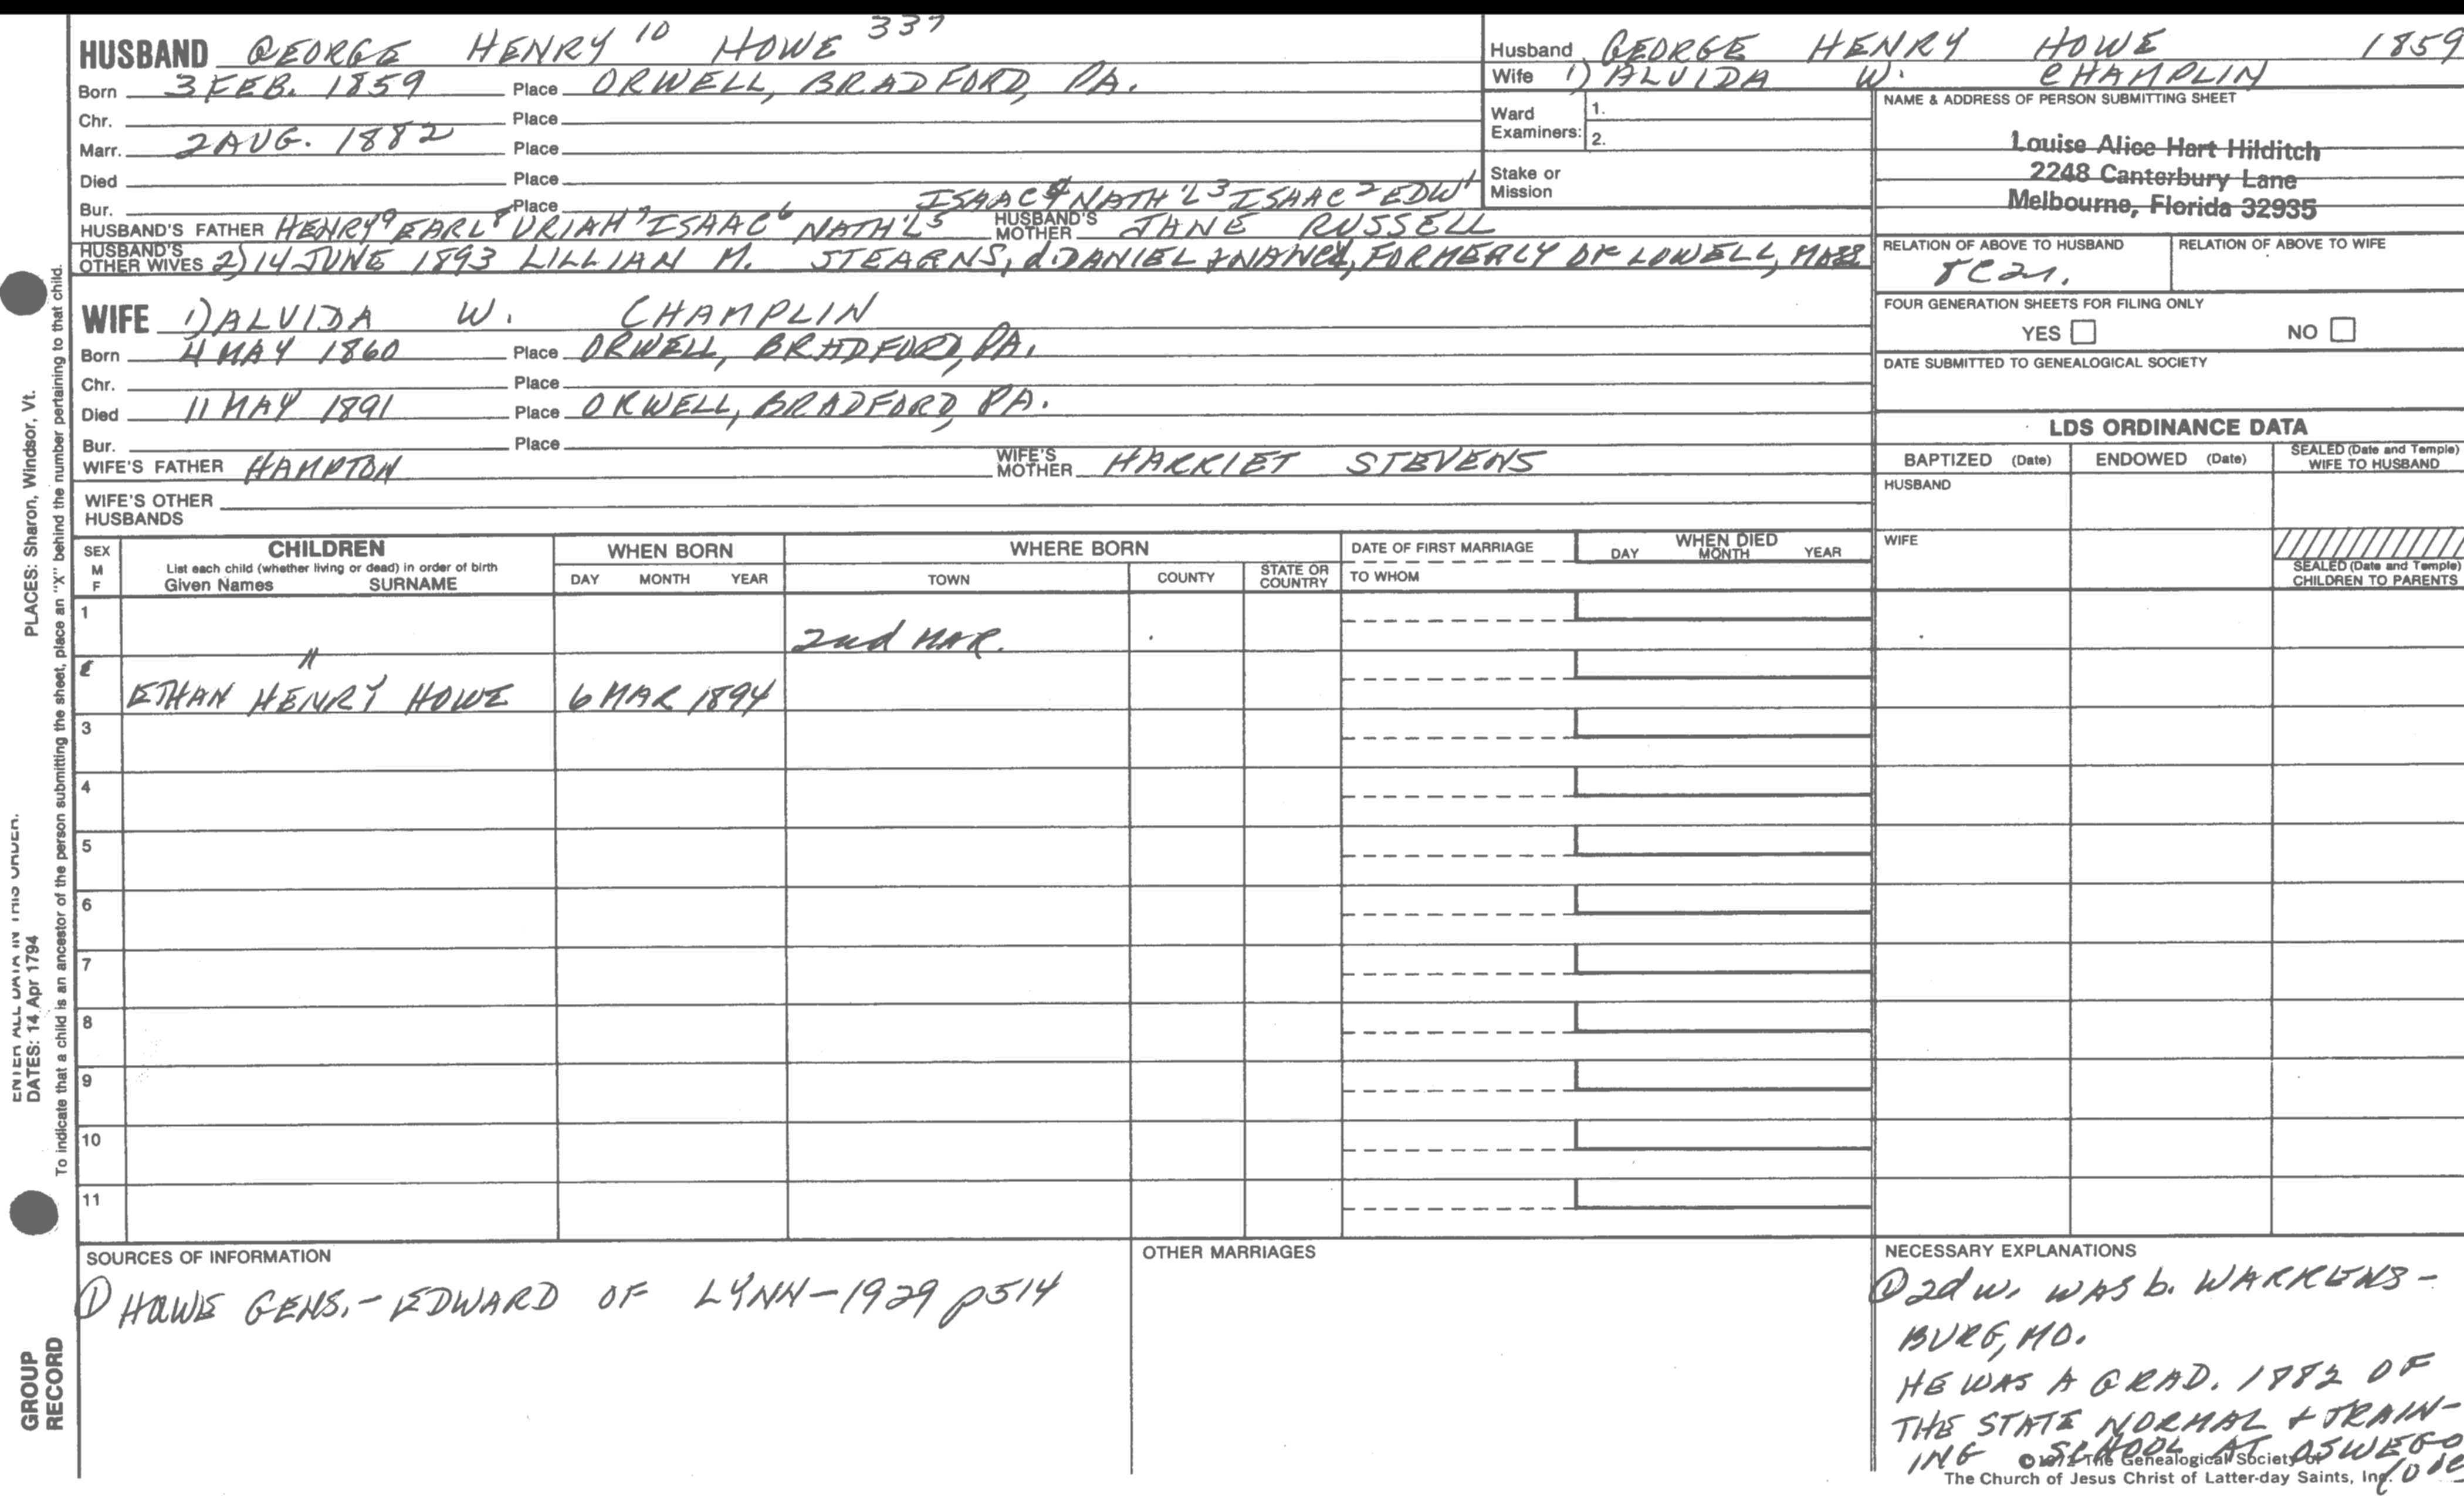 HUSBAND GEORGE HENRY 10 HOWE 337
Born 3 FEB. 1859 Place ORWELL, BRADFORD, PA.
Chr. Place
Marr. 2 AUG. 1882 Place
Died Place
Bur. Place ISAAC 4 NATH'L 3 ISAAC 2 EDW 1
HUSBAND'S FATHER HENRY 9 EARL 8 URIAH 7 ISAAC 6 NATH'L 5 HUSBAND'S MOTHER JANE RUSSELL
HUSBAND'S OTHER WIVES 2) 14 JUNE 1893 LILLIAN M. STEARNS, d. DANIEL & NANCY, FORMERLY OF LOWELL, MASS
WIFE 1) ALVIDA W. CHAMPLIN
Born 4 MAY 1860 Place ORWELL, BRADFORD, PA.
Chr. Place
Died 11 MAY 1891 Place ORWELL, BRADFORD, PA.
Bur. Place
WIFE'S FATHER HAMPTON WIFE'S MOTHER HARRIET STEVENS
WIFE'S OTHER HUSBANDS
Husband GEORGE HENRY HOWE 1859
Wife 1) ALVIDA W. CHAMPLIN
Ward Examiners: 1.
2.
Stake or Mission
NAME & ADDRESS OF PERSON SUBMITTING SHEET
Louise Alice Hart Hilditch
2248 Canterbury Lane
Melbourne, Florida 32935
RELATION OF ABOVE TO HUSBAND RELATION OF ABOVE TO WIFE
FOUR GENERATION SHEETS FOR FILING ONLY
YES NO
DATE SUBMITTED TO GENEALOGICAL SOCIETY
LDS ORDINANCE DATA
BAPTIZED (Date) ENDOWED (Date) SEALED (Date and Temple) WIFE TO HUSBAND
HUSBAND
WIFE
SEALED (Date and Temple) CHILDREN TO PARENTS
SEX M F
CHILDREN
List each child (whether living or dead) in order of birth
Given Names SURNAME
WHEN BORN
DAY MONTH YEAR
WHERE BORN
TOWN COUNTY STATE OR COUNTRY
DATE OF FIRST MARRIAGE
TO WHOM
WHEN DIED
DAY MONTH YEAR
1
" 2nd MAR.
ETHAN HENRY HOWE 6 MAR 1894
3
4
5
6
7
8
9
10
11
SOURCES OF INFORMATION
① HOWE GENS. - EDWARD OF LYNN - 1929 p514
OTHER MARRIAGES
NECESSARY EXPLANATIONS
① 2d w. WAS b. WARRENS-
BURG, MO.
HE WAS A GRAD. 1882 OF
THE STATE NORMAL & TRAIN-
ING SCHOOL AT OSWEGO
© 1972 The Genealogical Society of
The Church of Jesus Christ of Latter-day Saints, Inc.
PLACES: Sharon, Windsor, Vt.
To indicate that a child is an ancestor of the person submitting the sheet, place an "X" behind the number pertaining to that child.
ENTER ALL DATA IN THIS ORDER.
DATES: 14 Apr 1794
GROUP
RECORD